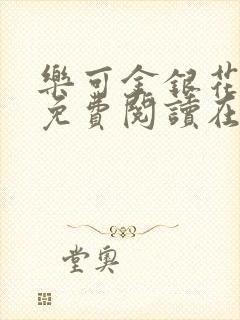 樂可金銀花
免費閱讀在
堂奧